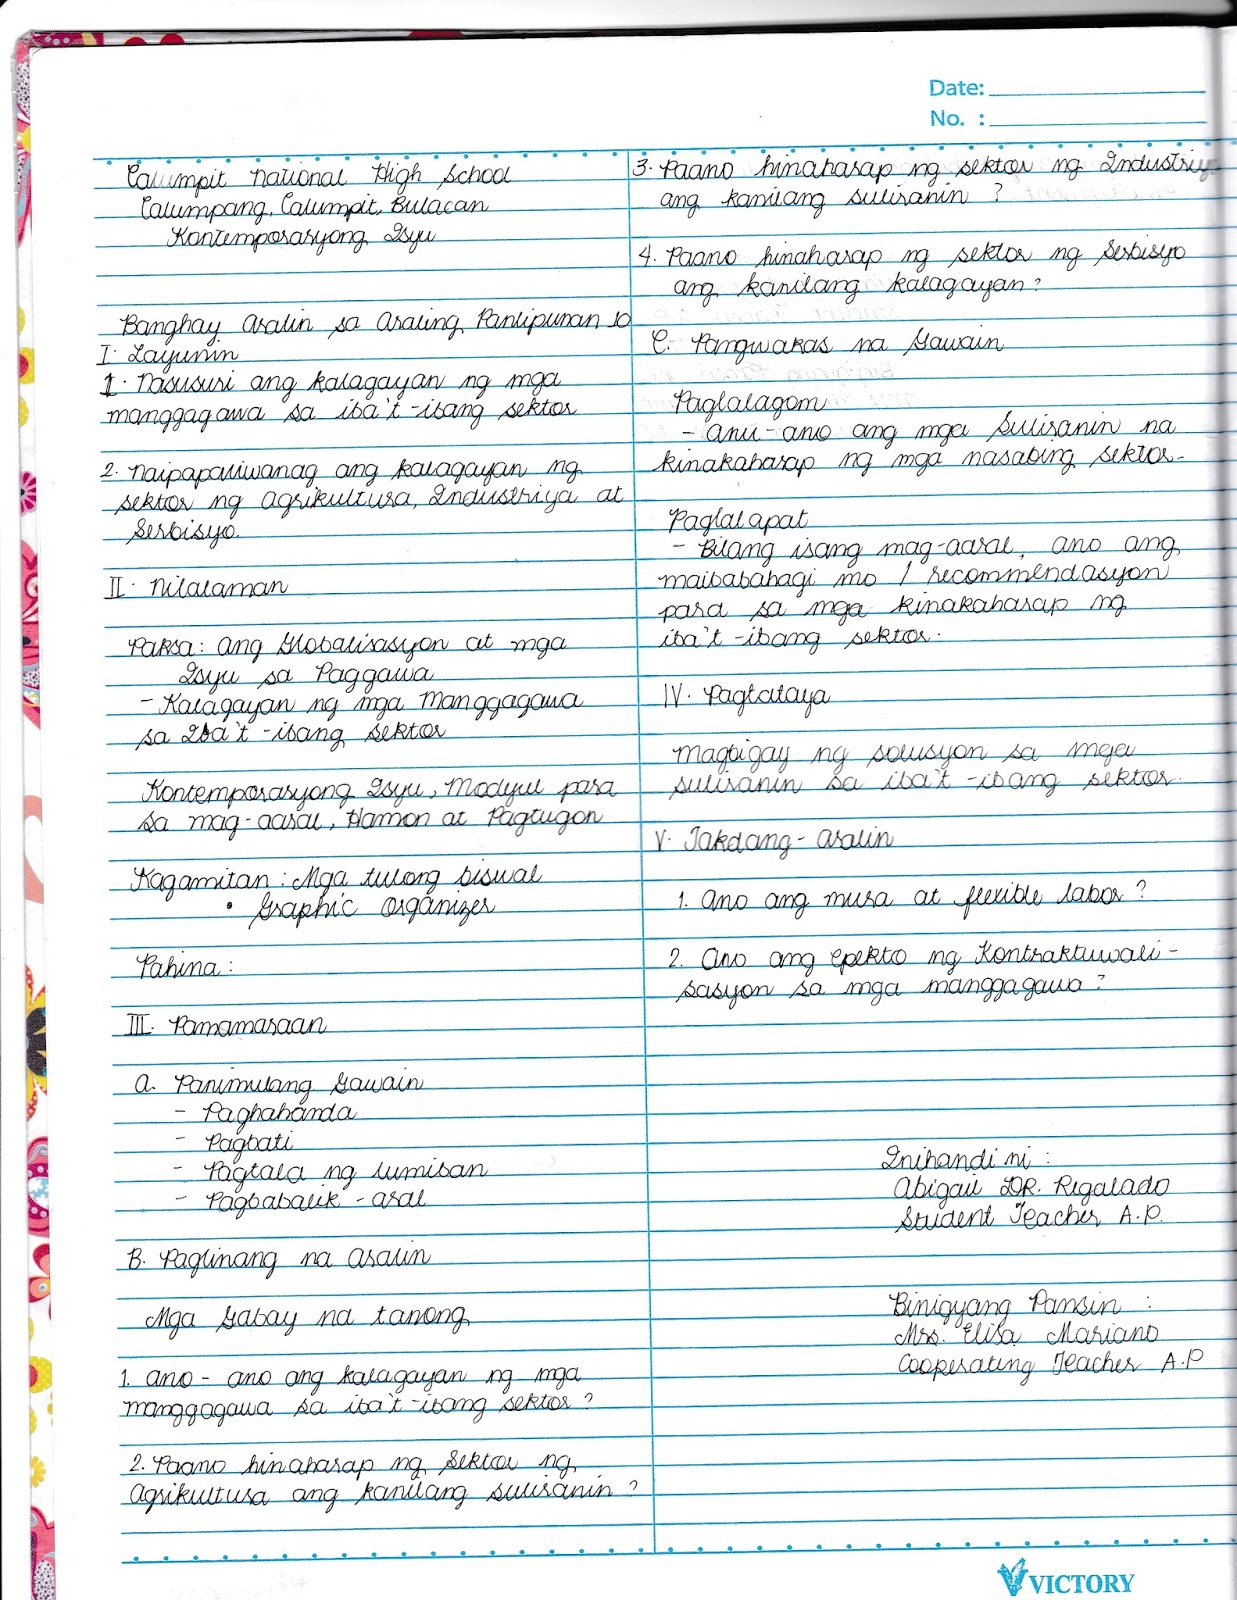 Date:
No. :
Calumpit National High School
Calumpang, Calumpit, Bulacan
Kontemporaryong Isyu
Banghay Aralin sa Araling Panlipunan 10
I. Layunin
1. Nasusuri ang kalagayan ng mga
manggagawa sa iba't-ibang sektor
2. Naipapaliwanag ang kalagayan ng
sektor ng Agrikultura, Industriya at
Serbisyo.
II. Nilalaman
Paksa: Ang Globalisasyon at mga
Isyu sa Paggawa
- Kalagayan ng mga Manggagawa
sa Iba't-ibang Sektor
Kontemporaryong Isyu, Modyul para
sa mag-aaral, Hamon at Pagtugon
Kagamitan: Mga tulong biswal
• Graphic Organizer
Pahina:
III. Pamamaraan
A. Panimulang Gawain
- Paghahanda
- Pagbati
- Pagtala ng lumiban
- Pagbabalik-aral
B. Paglinang na Aralin
Mga Gabay na tanong
1. Ano-ano ang kalagayan ng mga
manggagawa sa iba't-ibang sektor?
2. Paano hinaharap ng Sektor ng
Agrikultura ang kanilang suliranin?
3. Paano hinaharap ng sektor ng Industriya
ang kanilang suliranin?
4. Paano hinaharap ng sektor ng Serbisyo
ang kanilang kalagayan?
C. Pangwakas na Gawain
Paglalagom
- Anu-ano ang mga Suliranin na
kinakaharap ng mga nasabing sektor.
Paglalapat
- Bilang isang mag-aaral, ano ang
maibabahagi mo / recommendasyon
para sa mga kinakaharap ng
iba't-ibang sektor.
IV. Pagtataya
Magbigay ng solusyon sa mga
suliranin sa iba't-ibang sektor.
V. Takdang-Aralin
1. Ano ang mura at flexible labor?
2. Ano ang epekto ng Kontraktuwali-
sasyon sa mga manggagawa?
Inihandi ni:
Abigail DR. Regalado
Student Teacher A.P.
Binigyang Pansin:
Mrs. Eliza Mariano
Cooperating Teacher A.P
VICTORY